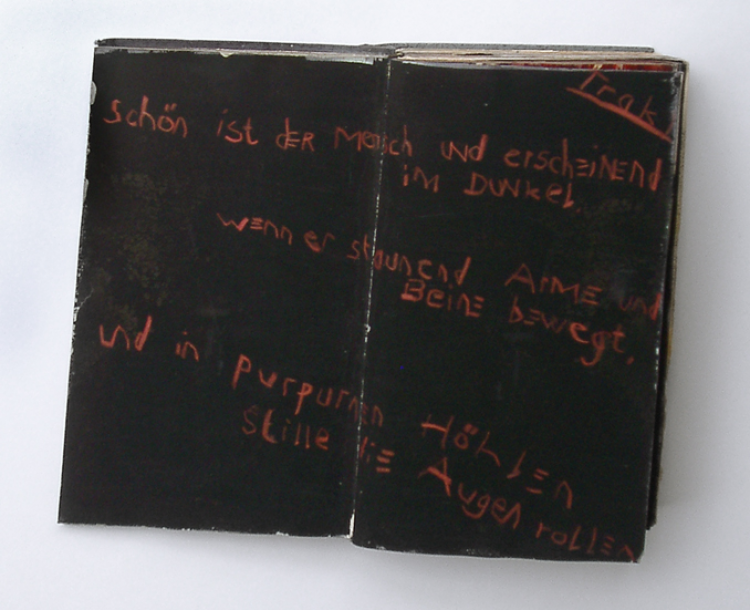 Trakl
schön ist dER Mensch und erscheinend
im Dunkel,
wenn er staunend Arme und
Beine bewegt,
und in purpurnen Höhlen
Stille die Augen rollen